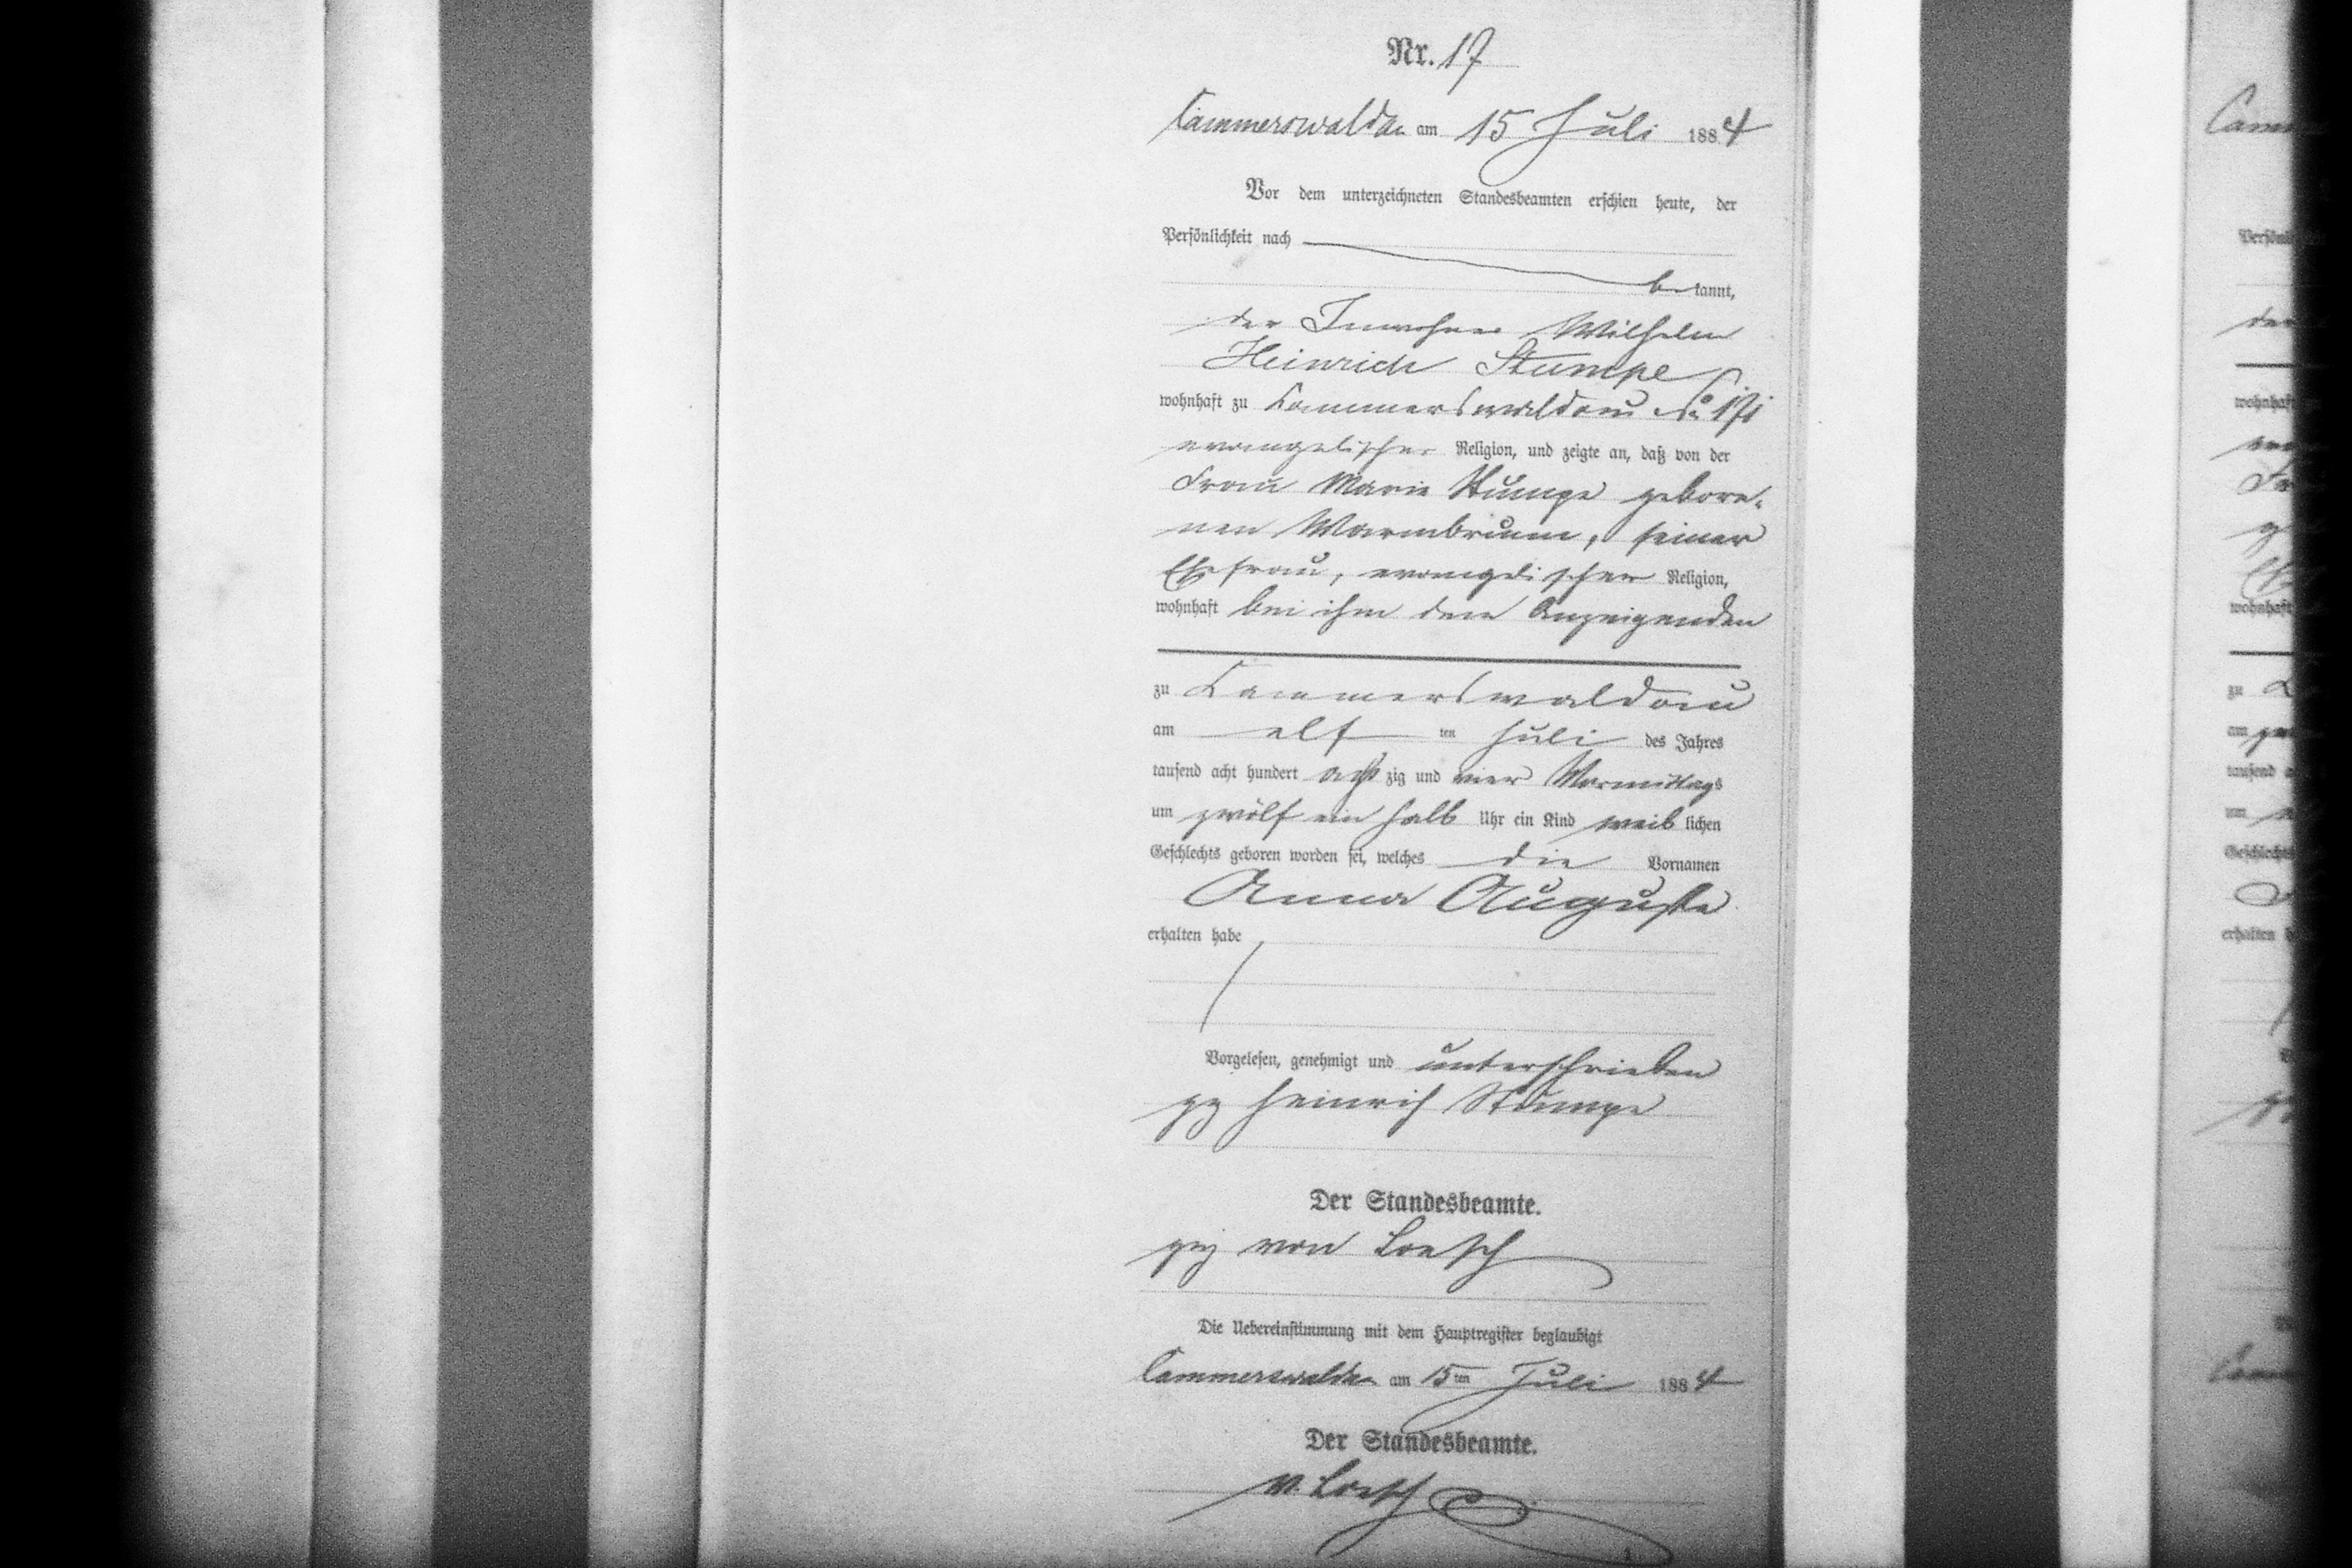 Nr. 17
Cammerswaldau am 15 Juli 1884
Vor dem unterzeichneten Standesbeamten erschien heute, der
Persönlichkeit nach
bekannt,
der Inwohner Wilhelm
Heinrich Stumpe
wohnhaft zu Cammerswaldau No
evangelischer Religion, und zeigte an, daß von der
Frau Marie Stumpe gebore-
nen Warmbrunn, seiner
Ehefrau, evangelischer Religion,
wohnhaft bei ihm dem Anzeigenden
zu Cammerswaldau
am elf ten Juli des Jahres
tausend acht hundert acht zig und vier Vormittags
um zwölf ein halb Uhr ein Kind weib lichen
Geschlechts geboren worden sei, welches die Vornamen
Anna Auguste
erhalten habe
Vorgelesen, genehmigt und unterschrieben
gz Heinrich Stumpe
Der Standesbeamte.
gez von Loesch
Die Uebereinstimmung mit dem Hauptregister beglaubigt
Cammerswaldau am 15 ten Juli 1884
Der Standesbeamte.
v. Loesch
Cam
der
wohnhaft
zu
am
um
erhalten